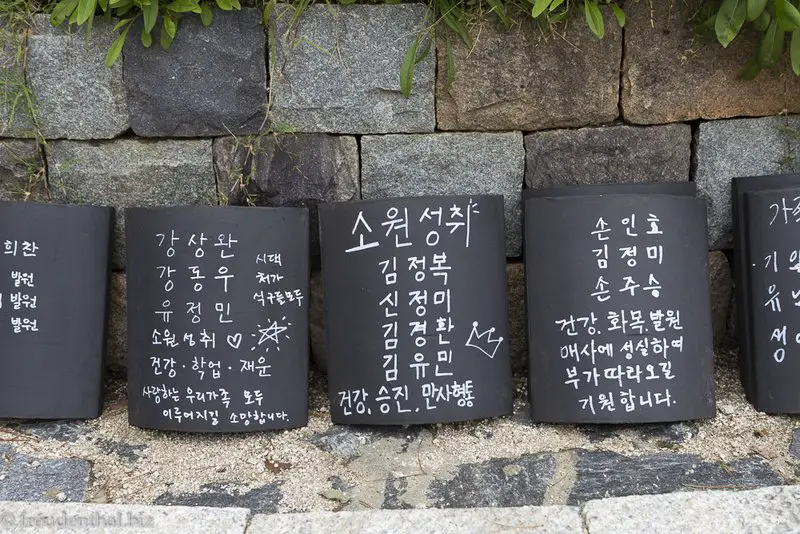 희찬
발원
발원
발원
강상완
강동우
유정민
시댁
처가
식구들모두
소원성취♡
건강·학업·재운
사랑하는 우리가족 모두
이루어지길 소망합니다.
소원성취
김정복
신정미
김경환
김유민
건강, 승진, 만사형통
손인호
김정미
손주승
건강, 화목, 발원
매사에 성실하여
부가 따라오길
기원합니다.
가족
기원
유
성
©freudenthal.biz